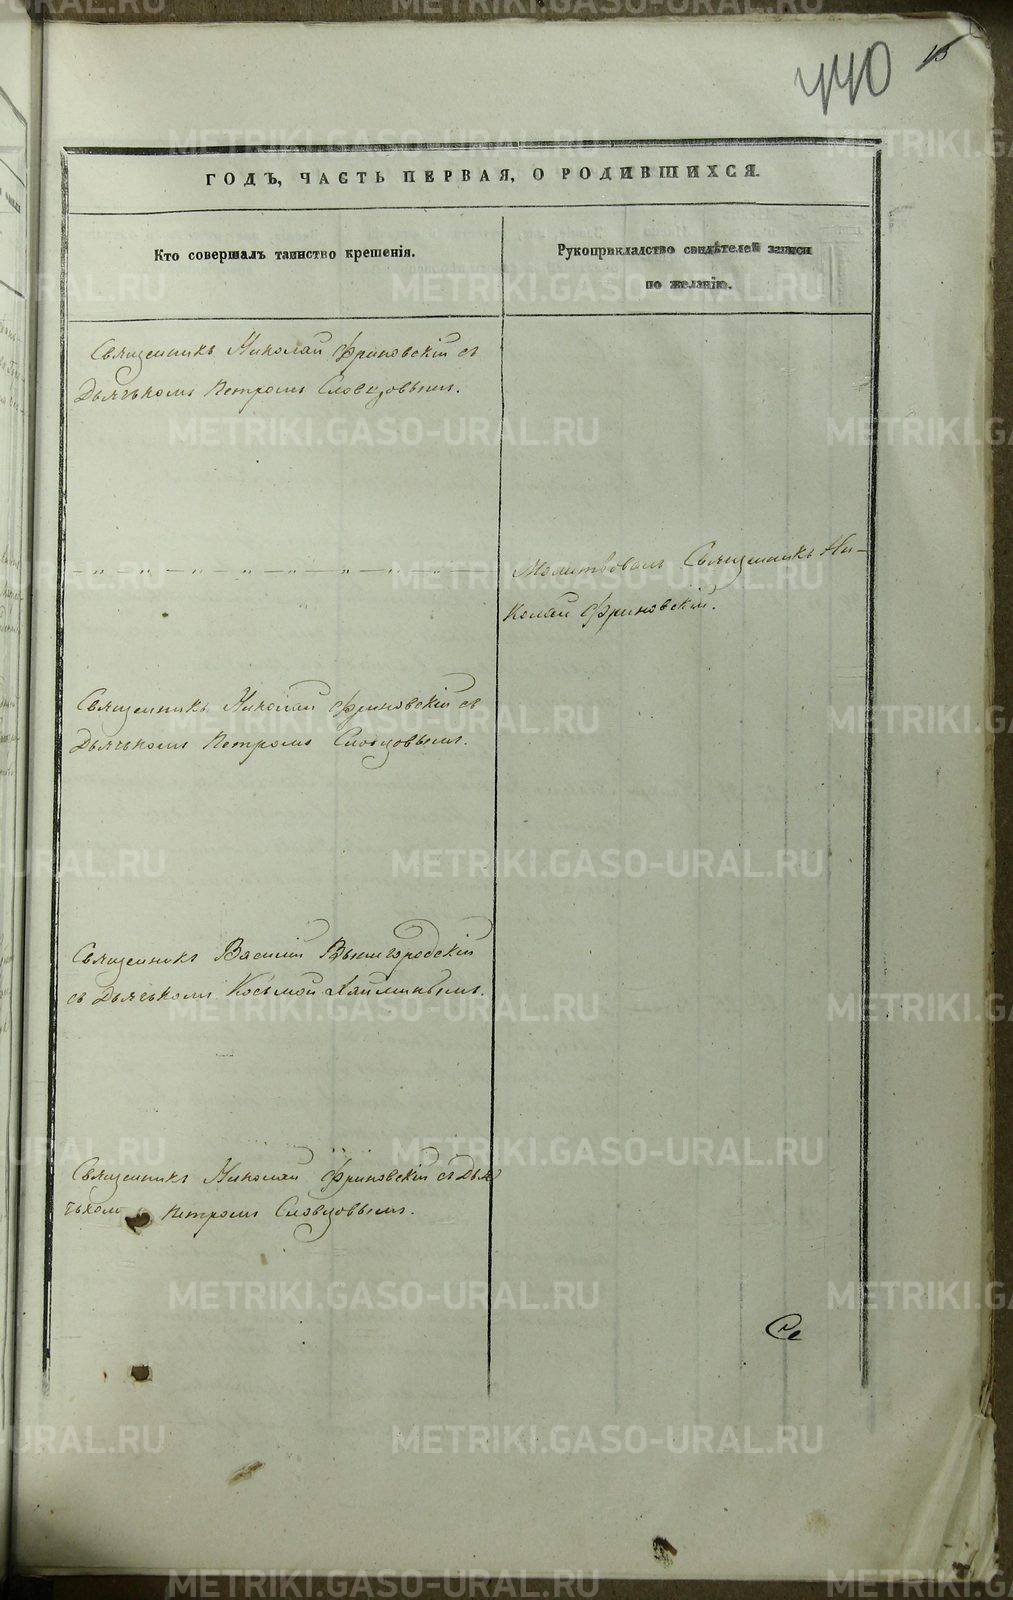 440
ГОДЪ, ЧАСТЬ ПЕРВАЯ, О РОДИВШИХСЯ.
Кто совершалъ таинство крещенія.
Рукоприкладство свидѣтелей записи
по желанію.
Священникъ Николай Фриновскій съ
Дьячькомъ Петромъ Словцовымъ.
Молитвовалъ Священникъ Ни-
колай Фриновскій.
Священникъ Николай Фриновскій съ
Дьячькомъ Петромъ Словцовымъ.
Священникъ Василій Вышгородскій
съ Дьячькомъ Косьмой
Священникъ Николай Фриновскій съ Дья
чькомъ Петромъ Словцовымъ.
METRIKI.GASO-URAL.RU